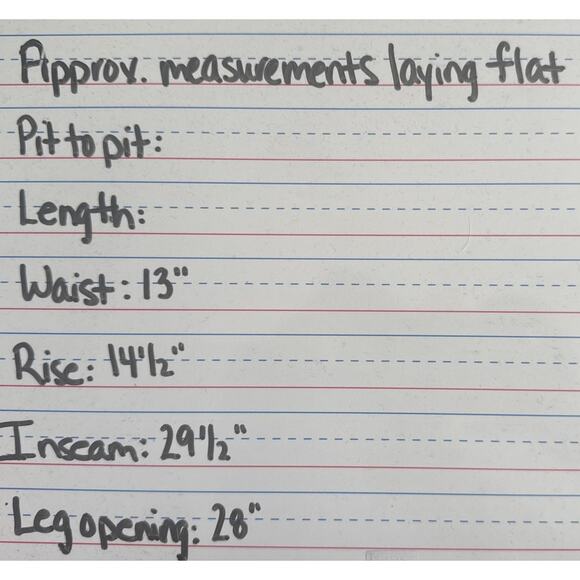 Approx. measurements laying flat
Pit to pit:
Length:
Waist: 13"
Rise: 14 1/2"
Inseam: 29 1/2"
Leg opening: 28"